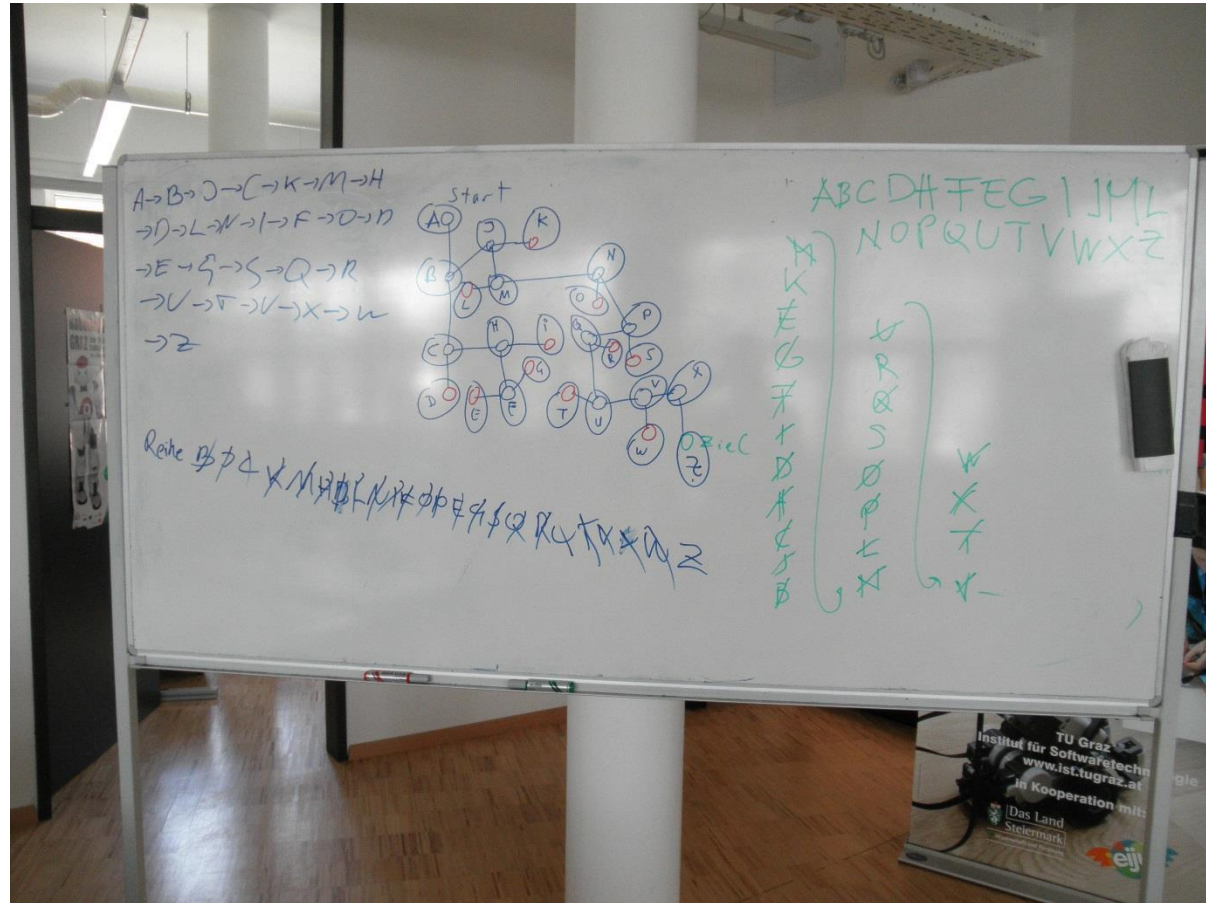 A→B→J→C→K→M→H
→D→L→N→I→F→O→P
→E→G→S→Q→R
→U→T→V→X→W
→Z
Start
A
J
K
B
L
M
N
O
P
C
H
i
Q
R
S
D
E
F
G
T
U
V
X
W
Ziel
Z
Reihe B J C K M H D L N I F O P E G S Q R U T V X W Z
ABCDHFEGIJML
NOPQUTVWXZ
M
K
E
G
F
I
D
H
C
J
B
U
R
Q
S
O
P
L
N
W
X
T
V
TU Graz
Institut für Softwaretechnologie
www.ist.tugraz.at
in Kooperation mit:
Das Land
Steiermark